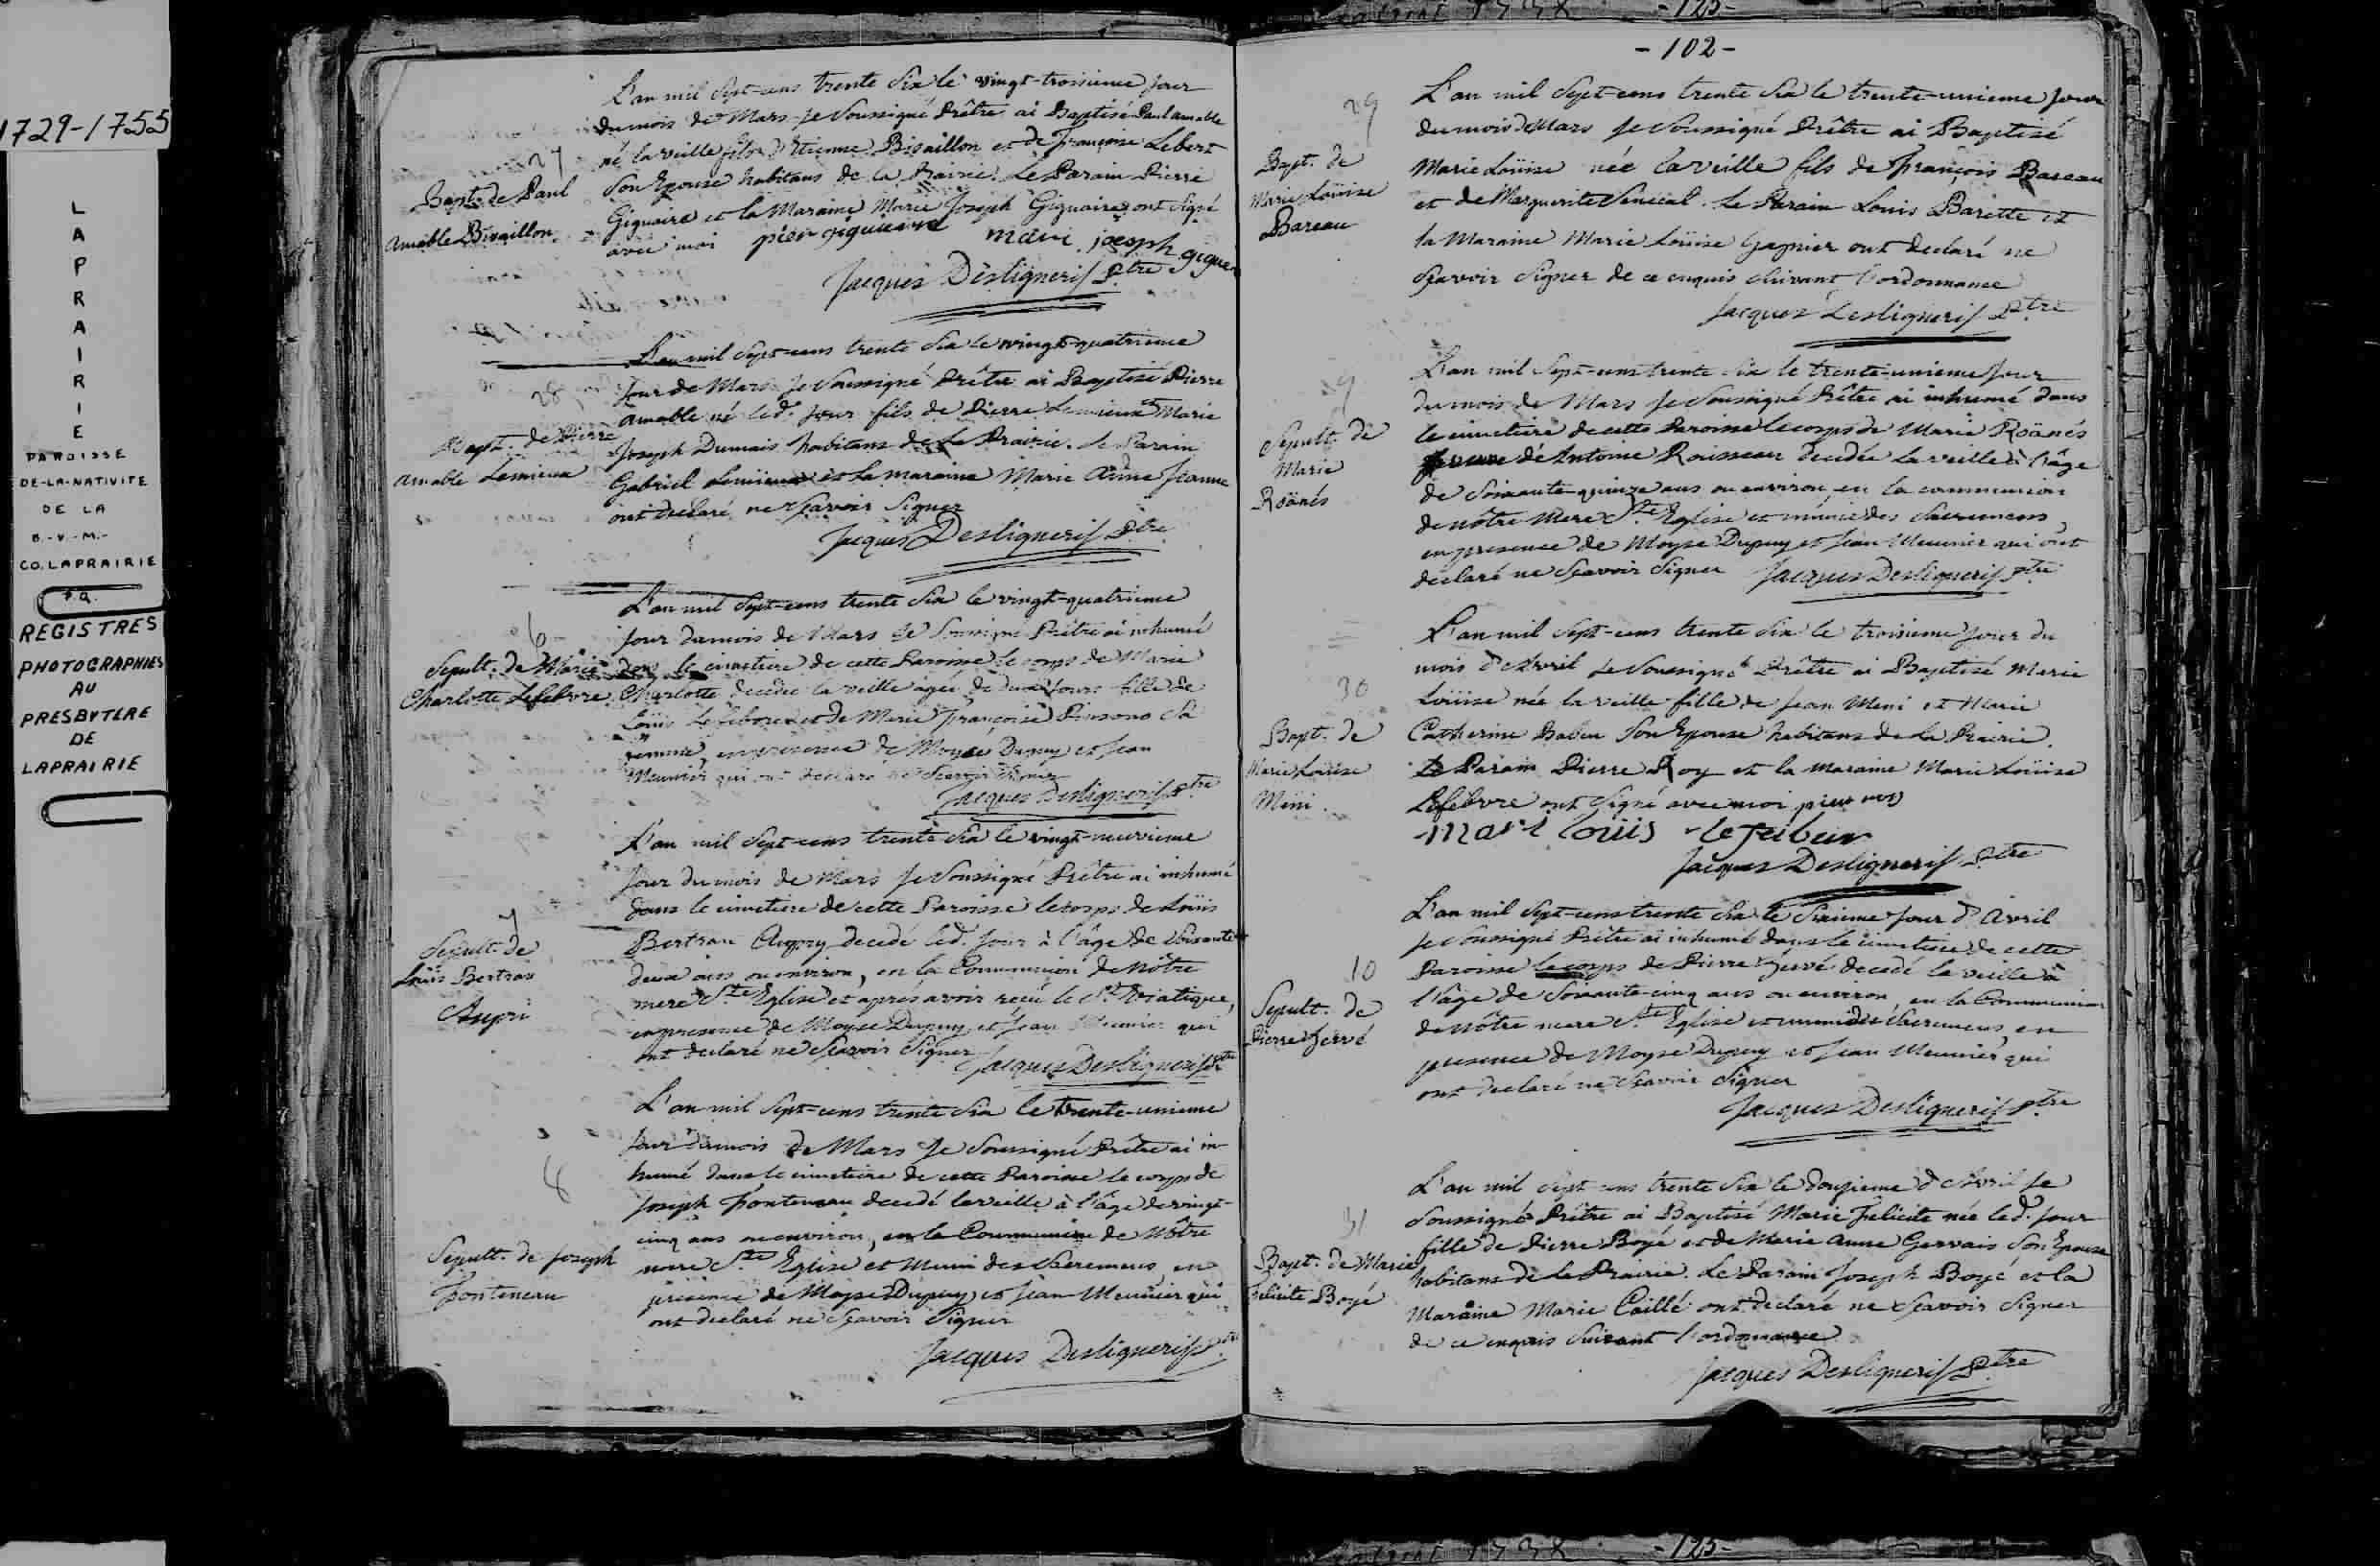 1729-1755
L
A
P
R
A
I
R
I
E
PAROISSE
DE-LA-NATIVITE
DE LA
B.-V.-M.-
CO. LAPRAIRIE
P.Q.
REGISTRES
PHOTOGRAPHIES
AU
PRESBYTERE
DE
LAPRAIRIE
27
Bapt. de Paul
amable Bisaillon
L'an mil Sept-cens trente Six le vingt-troisieme jour
du mois de Mars je Soussigné Prêtre ai Baptisé Paul amable
né la veille fils d'Etienne Bisaillon et de françoise Lebert
Son Epouse habitans de la Prairie. Le Parain Pierre
Giguaire et la Maraine Marie Joseph Giguaire ont signé
avec moi
Jacques Desligneris Ptre
28
Bapt. de Pierre
amable Lemieux
L'an mil Sept-cens trente Six le vingt-quatrieme
Jour de Mars je Soussigné Prêtre ai Baptisé Pierre
amable né led. jour fils de Pierre Lemieux et Marie
Joseph Dumais habitans de La Prairie. Le Parain
Gabriel Lemieux et La maraine Marie Anne Jeanne
ont declaré ne Sçavoir Signer
Jacques Desligneris Ptre
6
Sepult. de Marie
Charlotte Lefebvre
L'an mil Sept-cens trente Six le vingt-quatrieme
jour du mois de Mars je Soussigné Prêtre ai inhumé
dans le cimetiere de cette Paroisse le corps de Marie
Charlotte decedée la veille agée de jours fille de
Loüis Lefebvre et de Marie françoise Pinsono Sa
femme, en presence de Moyse Dupuy et Jean
Meunier qui ont declaré ne Scavoir Signer
Jacques Desligneris Ptre
7
Sepult. de
Loüis Bertran
Aupri
L'an mil Sept-cens trente Six le vingt-neuvieme
jour du mois de Mars je Soussigné Prêtre ai inhumé
dans le cimetiere de cette Paroisse le corps de Loüis
Bertran Aupry decedé led. jour à l'âge de soixante
deux ans ou environ, en la Communion de Nôtre
mere Ste Eglise et aprés avoir reçu le St Viatique,
en presence de Moyse Dupuy, et Jean Meunier qui
ont declaré ne Sçavoir Signer Jacques Desligneris Ptre
8
Sepult. de Joseph
Fonteneau
L'an mil Sept-cens trente Six le trente-unieme
jour du mois de Mars je Soussigné Prêtre ai in-
humé dans le cimetiere de cette Paroisse le corps de
Joseph Fonteneau decedé la veille à l'âge de vingt-
cinq ans ou environ, en la Communion de Nôtre
mere Ste Eglise et Muni des Sacremens, en
présence de Moyse Dupuy, et Jean Meunier qui
ont declaré ne Sçavoir Signer
Jacques Desligneris Ptre
-125-
-102-
29
Bapt. de
Marie Loüise
Bareau
L'an mil Sept-cens trente Six le trente-unieme jour
du mois de Mars je Soussigné Prêtre ai Baptisé
Marie Loüise née la veille fils de françois Bareau
et de Marguerite Senécal. Le Parain Louis Barette et
la Maraine Marie Loüise Gagnier ont declaré ne
Sçavoir Signer de ce enquis Suivant l'ordonnance
Jacques Desligneris Ptre
9
Sepult. de
Marie
Roänés
L'an mil Sept-cens trente Six le trente-unieme jour
du mois de Mars je Soussigné Prêtre ai inhumé dans
le cimetiere de cette Paroisse le corps de Marie Roänés
de Antoine Rousseau decedée La veille à l'âge
de Soixante-quinze ans ou environ, en la communion
de nôtre Mere Ste Eglise et munie des Sacremens,
en presence de Moyse Dupuy et Jean Meunier qui ont
declaré ne Sçavoir Signer Jacques Desligneris Ptre
30
Bapt. de
Marie Loüise
Mini.
L'an mil Sept-cens trente Six le troisieme jour du
mois d'Avril je Soussigné Prêtre ai Baptisé Marie
Loüise née la veille fille de Jean Meni et Marie
Catherine Babeu Son Epouse habitans de la Prairie.
Le Parain Pierre Roy et la Maraine Marie Loüise
Lefebvre ont Signé avec moi
Jacques Desligneris Ptre
10
Sepult. de
Pierre Hervé
L'an mil Sept-cens trente Six le Sixieme jour d'Avril
je Soussigné Prêtre ai inhumé dans le cimetiere de cette
Paroisse le corps de Pierre Hervé decedé la veille à
l'âge de Soixante-cinq ans ou environ, en la Communion
de Nôtre mere Ste Eglise et muni des Sacremens, en
presence de Moyse Dupuy et Jean Meunier qui
ont declaré ne Sçavoir Signer
Jacques Desligneris Ptre
31
Bapt. de Marie
Felicite Boyé
L'an mil Sept-cens trente Six le douzieme d'Avril je
Soussigné Prêtre ai Baptisé Marie Felicite née led. jour
fille de Pierre Boyé et de Marie Anne Gervais Son Epouse
habitans de la Prairie. Le Parain Joseph Boyé et la
Maraine Marie Caillé ont declaré ne Sçavoir Signer
de ce enquis Suivant l'ordonnance
Jacques Desligneris Ptre
-125-